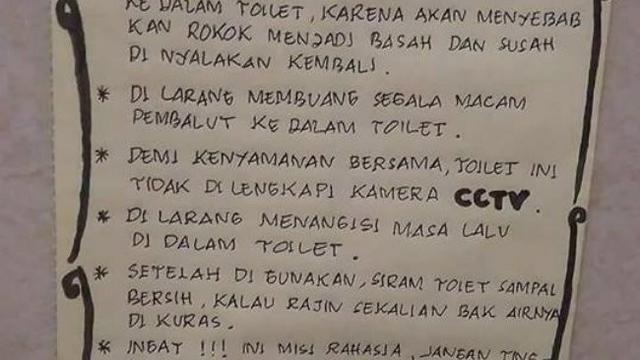 KE DALAM TOILET, KARENA AKAN MENYEBAB
KAN ROKOK MENJADI BASAH DAN SUSAH
DI NYALAKAN KEMBALI.
* DI LARANG MEMBUANG SEGALA MACAM
PEMBALUT KE DALAM TOILET.
* DEMI KENYAMANAN BERSAMA, TOILET INI
TIDAK DI LENGKAPI KAMERA CCTV.
* DI LARANG MENANGISI MASA LALU
DI DALAM TOILET.
* SETELAH DI GUNAKAN, SIRAM TOLET SAMPAI
BERSIH, KALAU RAJIN SEKALIAN BAK AIRNYA
DI KURAS.
* INGAT !!! INI MISI RAHASIA, JANGAN